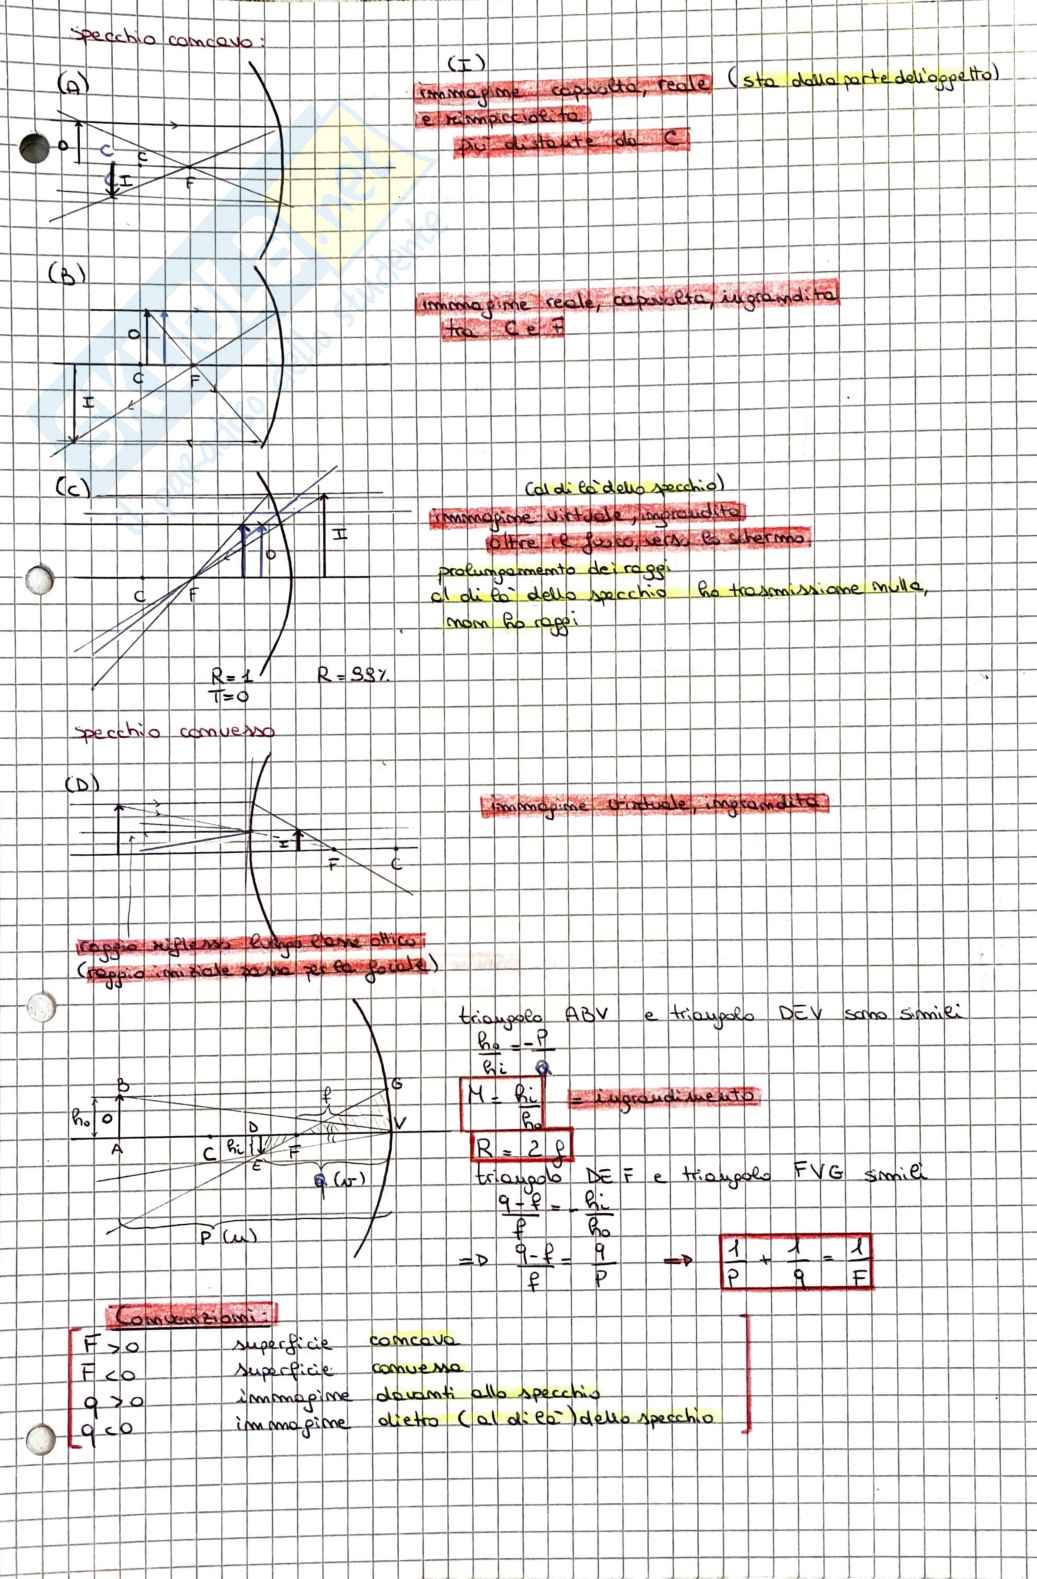 specchio concavo:
(A)
(I)
immagine capovolta, reale (sta dalla parte dell'oggetto)
e rimpicciolita
più distante da C
O
C
C
I
F
(B)
immagine reale, capovolta, ingrandita
tra C e F
O
C
F
I
(C)
(al di là dello specchio)
immagine virtuale, ingrandita
oltre il fuoco, verso lo schermo
prolungamento dei raggi
al di là dello specchio ho trasmissione nulla,
non ho raggi
I
O
C
F
R=1
T=0
R=99%
specchio convesso
(D)
immagine virtuale, ingrandita
I
F
C
raggio riflesso lungo l'asse ottico
(raggio iniziale passa per la focale)
triangolo ABV e triangolo DEV sono simili
ho/hi = -P/q
M = hi/ho = ingrandimento
R = 2f
triangolo DEF e triangolo FVG simili
q-f/f = -hi/ho
=D q-f/f = q/P =D 1/P + 1/q = 1/F
B
f
G
ho
O
D
V
A
C
hi
F
E
q (v)
P (u)
Convenzioni:
F>0 superficie concava
F<0 superficie convessa
q>0 immagine davanti allo specchio
q<0 immagine dietro (al di là) dello specchio
SKUOLA.net
il paradiso dello studente